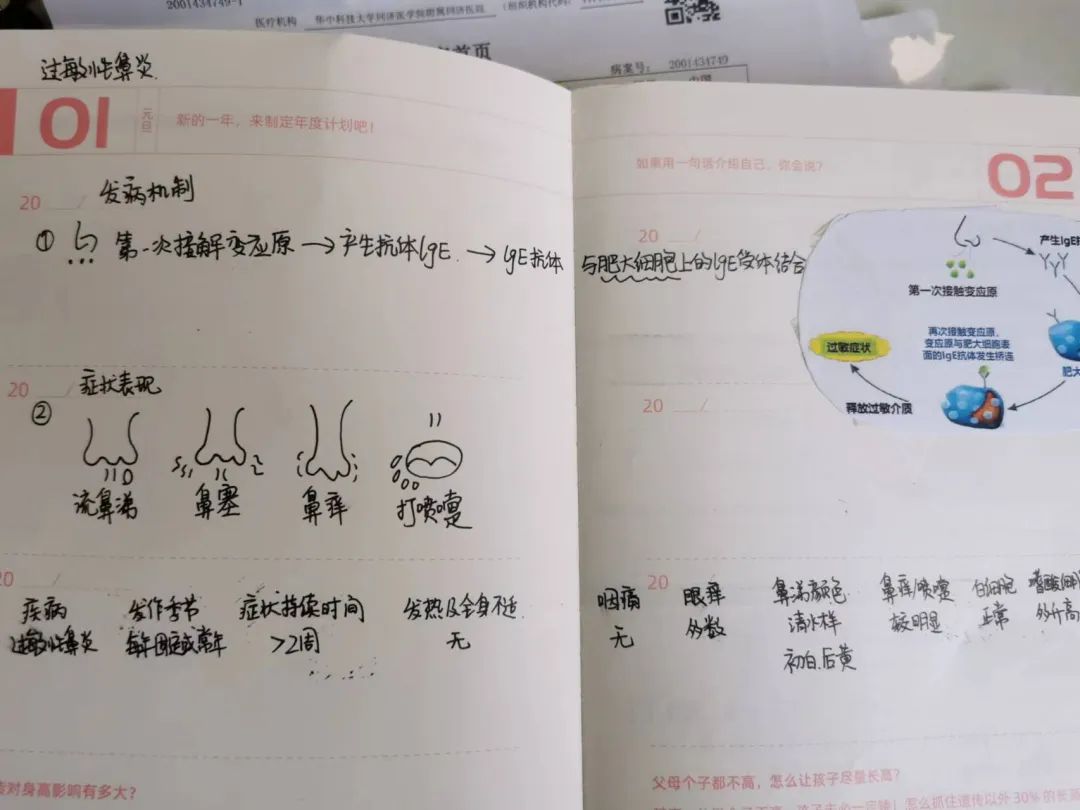 2001434749-1
医疗机构 华中科技大学同济医学院附属同济医院 (组织机构代码:
首页
病案号: 2001434749
中国
过敏性鼻炎
01 元旦 新的一年,来制定年度计划吧!
20 __/ 发病机制
① 第一次接解变应原→产生抗体IgE.→IgE抗体
20 __/ 症状表现
②
流鼻涕 鼻塞 鼻痒 打喷嚏
20 __/
疾病 发作季节 症状持续时间 发热及全身不适.
过敏性鼻炎 每年固定或常年 >2周 无
对身高影响有多大?
如果用一句话介绍自己,你会说?
02
20 __/
与肥大细胞上的IgE受体结合
产生IgE
第一次接触变应原
再次接触变应原,
变应原与肥大细胞表
面的IgE抗体发生桥连
过敏症状
肥大
释放过敏介质
20 __/
20
咽痛 眼痒 鼻涕颜色 鼻痒/喷嚏 白细胞 嗜酸
无 多数 清水样 较明显 正常 多升高
初白.后黄
父母个子都不高,怎么让孩子尽量长高?
怎么抓住遗传以外30%的长高